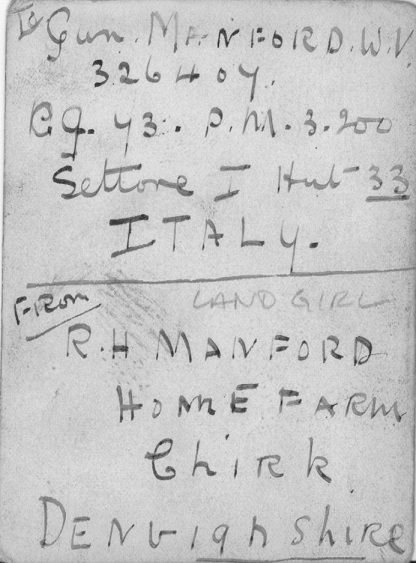 To Gun. MANFORD. W. V.
326407.
C.G. 73. P.M. 3.200
Settore I Hut 33
ITALY.
FROM LAND GIRL
R.H MANFORD
HOME FARM
ChiRk
DENbighShiRE